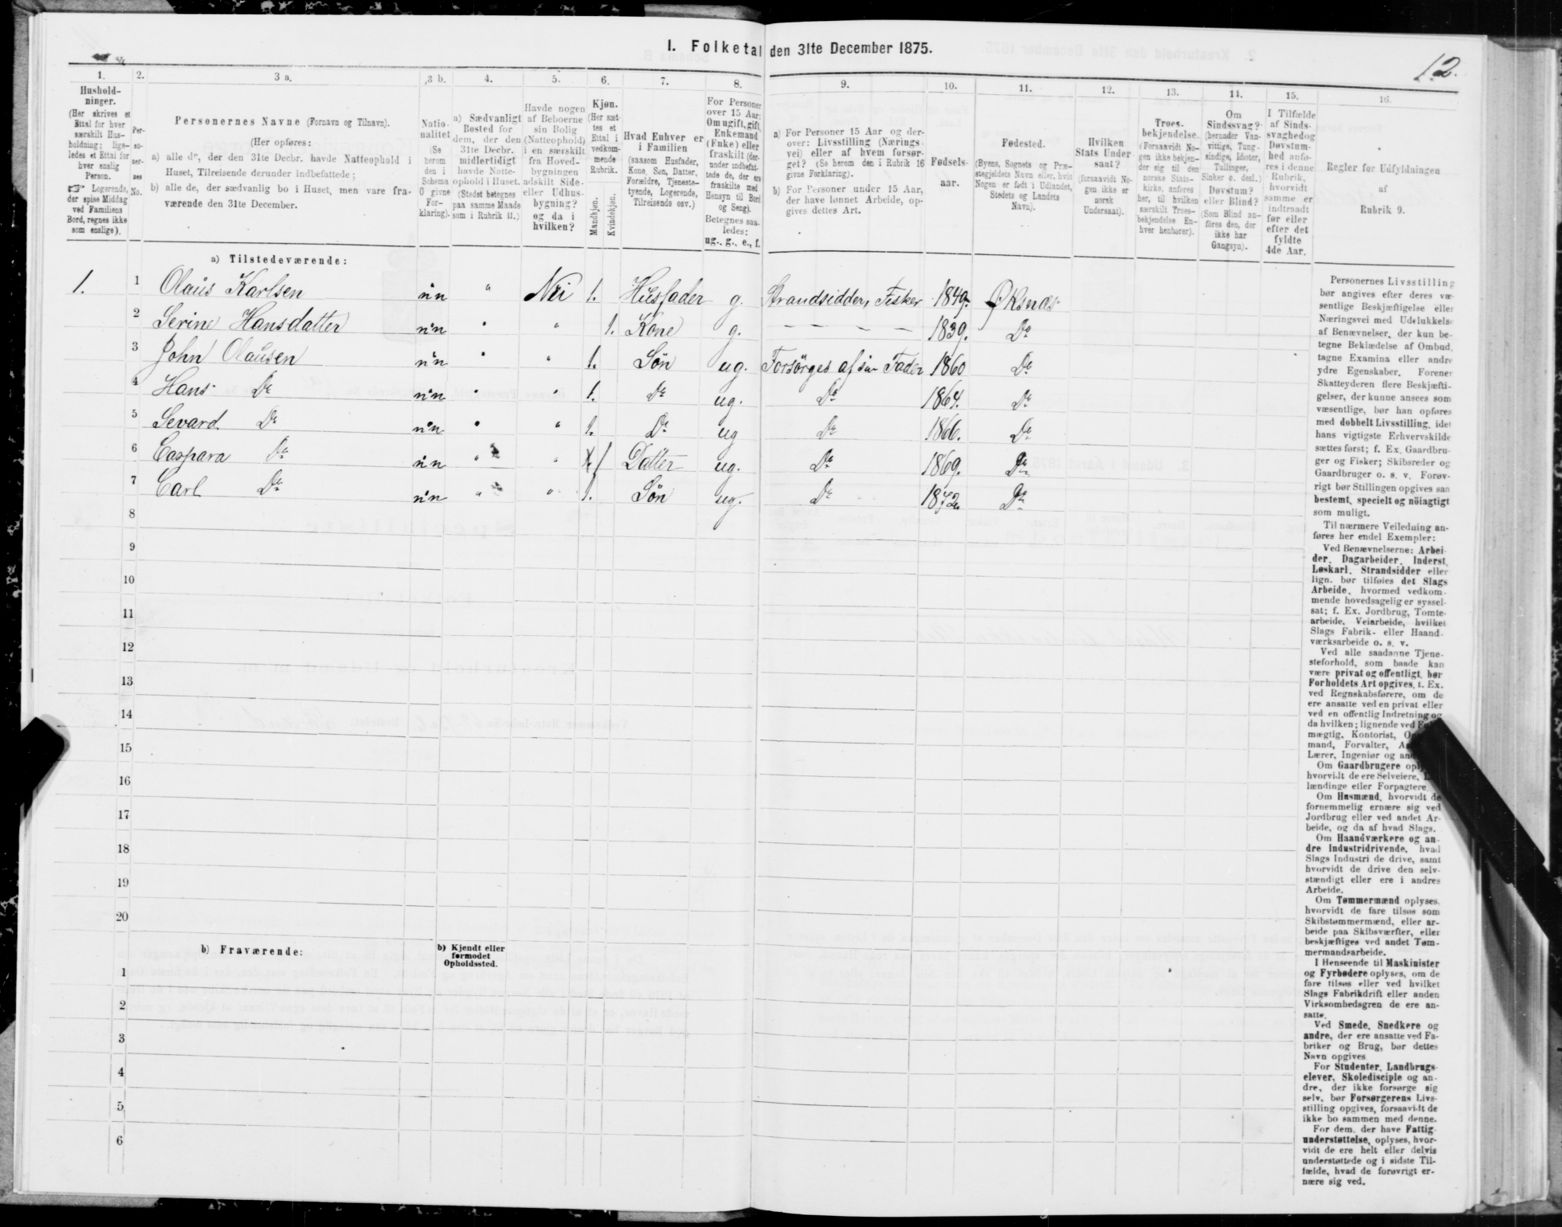 I. Folketal den 31te December 1875.
12.
1.
Hushold-
ninger.
(Her skrives et
Ettal for hver
særskilt Hus-
holdning; lige-
ledes et Ettal for
hver enslig
Person.
☞ Logerende,
der spise Middag
ved Familiens
Bord, regnes ikke
som enslige).
2.
Per-
so-
ner-
nes
No.
3 a.
Personernes Navne (Fornavn og Tilnavn).
(Her opføres:
a) alle de, der den 31te Decbr. havde Natteophold i
Huset, Tilreisende derunder indbefattede;
b) alle de, der sædvanlig bo i Huset, men vare fra-
værende den 31te December.
3 b.
Natio-
nalitet
(Se
herom
den i
Schema
O givne
For-
klaring).
4.
a) Sædvanligt
Bosted for
dem, der den
31te Decbr.
midlertidigt
havde Natte-
ophold i Huset.
(Stedet betegnes
paa samme Maade
som i Rubrik 11.)
5.
Havde nogen
af Beboerne
sin Bolig
(Natteophold)
i en særskilt
fra Hoved-
bygningen
adskilt Side-
eller Udhus-
bygning?
og da i
hvilken?
6.
Kjøn.
(Her sæt-
tes et
Ettal i
vedkom-
mende
Rubrik.
Mandkjøn.
Kvindekjøn.
7.
Hvad Enhver er
i Familien
(saasom Husfader,
Kone, Søn, Datter,
Forældre, Tjeneste-
tyende, Logerende,
Tilreisende osv.)
8.
For Personer
over 15 Aar:
Om ugift, gift,
Enkemand
(Enke) eller
fraskilt (der-
under indbefat-
tede de, der ere
fraskilte med
Hensyn til Bord
og Seng).
Betegnes saa-
ledes:
ug., g., e., f.
9.
a) For Personer 15 Aar og der-
over: Livsstilling (Nærings-
vei) eller af hvem forsør-
get? (Se herom den i Rubrik 16
givne Forklaring).
b) For Personer under 15 Aar,
der have lønnet Arbeide, op-
gives dettes Art.
10.
Fødsels-
aar.
11.
Fødested.
(Byens, Sognets og Præ-
stegjeldets Navn eller, hvis
Nogen er født i Udlandet,
Stedets og Landets
Navn).
12.
Hvilken
Stats Under-
saat?
(forsaavidt No-
gen ikke er
norsk
Undersaat).
13.
Troes-
bekjendelse.
(Forsaavidt No-
gen ikke bekjen-
der sig til den
norske Stats-
kirke, anføres
her, til hvilken
særskilt Troes-
bekjendelse En-
hver henhører).
14.
Om
Sindssvag?
(herunder Van-
vittige, Tung-
sindige, Idioter,
Tullinger,
Sinker o. desl.)
Døvstum?
eller Blind?
(Som Blind an-
føres den, der
ikke har
Gangsyn).
15.
I Tilfælde
af Sinds-
svaghed og
Døvstum-
hed anfø-
res i denne
Rubrik,
hvorvidt
samme er
indtraadt
før eller
efter det
fyldte
4de Aar.
16.
Regler for Udfyldningen
af
Rubrik 9.
a) Tilstedeværende:
1. 1 Olaus Karlsen n.n " Nei 1. Husfader g. Strandsidder, Fisker 1849. Øksnæs
2 Serine Hansdatter n.n " " 1. Kone g. — — — — 1839. Do
3 John Olausen n.n " " 1. Søn ug. Forsørges af sin Fader 1860 Do
4 Hans Do n.n " " 1. Do ug. Do 1864. Do
5 Sevard Do n.n " " 1. Do ug Do 1866. Do
6 Caspara Do n.n " " 1 Datter ug. Do 1869. Do
7 Carl Do n.n " " 1. Søn ug. Do 1872. Do
8
9
10
11
12
13
14
15
16
17
18
19
20
b) Fraværende:
b) Kjendt eller
formodet
Opholdssted.
1
2
3
4
5
6
Personernes Livsstilling
bør angives efter deres væ-
sentlige Beskjæftigelse eller
Næringsvei med Udelukkelse
af Benævnelser, der kun be-
tegne Beklædelse af Ombud,
tagne Examina eller andre
ydre Egenskaber. Forener
Skatteyderen flere Beskjæfti-
gelser, der kunne ansees som
væsentlige, bør han opføres
med dobbelt Livsstilling, idet
hans vigtigste Erhvervskilde
sættes først; f. Ex. Gaardbru-
ger og Fisker; Skibsreder og
Gaardbruger o. s. v. Forøv-
rigt bør Stillingen opgives saa
bestemt, specielt og nöiagtigt
som muligt.
Til nærmere Veiledning an-
føres her endel Exempler:
Ved Benævnelserne: Arbei-
der, Dagarbeider, Inderst,
Løskarl, Strandsidder eller
lign. bør tilføies det Slags
Arbeide, hvormed vedkom-
mende hovedsagelig er syssel-
sat; f. Ex. Jordbrug, Tomte-
arbeide, Veiarbeide, hvilket
Slags Fabrik- eller Haand-
værksarbeide o. s. v.
Ved alle saadanne Tjene-
steforhold, som baade kan
være privat og offentligt, bør
Forholdets Art opgives, f. Ex.
ved Regnskabsførere, om de
ere ansatte ved en privat eller
ved en offentlig Indretning og
da hvilken; lignende ved
mægtig, Kontorist,
mand, Forvalter,
Lærer, Ingeniør og
Om Gaardbrugere
hvorvidt de ere Selveiere,
lændinge eller Forpagtere.
Om Husmænd, hvorvidt de
fornemmelig ernære sig ved
Jordbrug eller ved andet Ar-
beide, og da af hvad Slags.
Om Haandværkere og an-
dre Industridrivende, hvad
Slags Industri de drive, samt
hvorvidt de drive den selv-
stændigt eller ere i andres
Arbeide.
Om Tømmermænd oplyses,
hvorvidt de fare tilsøs som
Skibstømmermænd, eller ar-
beide paa Skibsværfter, eller
beskjæftiges ved andet Tøm-
mermandsarbeide.
I Henseende til Maskinister
og Fyrbødere oplyses, om de
fare tilsøs eller ved hvilket
Slags Fabrikdrift eller anden
Virksomhedsgren de ere an-
satte.
Ved Smede, Snedkere og
andre, der ere ansatte ved Fa-
briker og Brug, bør dettes
Navn opgives
For Studenter, Landbrugs-
elever, Skoledisciple og an-
dre, der ikke forsørge sig
selv, bør Forsørgerens Livs-
stilling opgives, forsaavidt de
ikke bo sammen med denne.
For dem, der have Fattig-
understøttelse, oplyses, hvor-
vidt de ere helt eller delvis
understøttede og i sidste Til-
fælde, hvad de forøvrigt er-
nære sig ved.